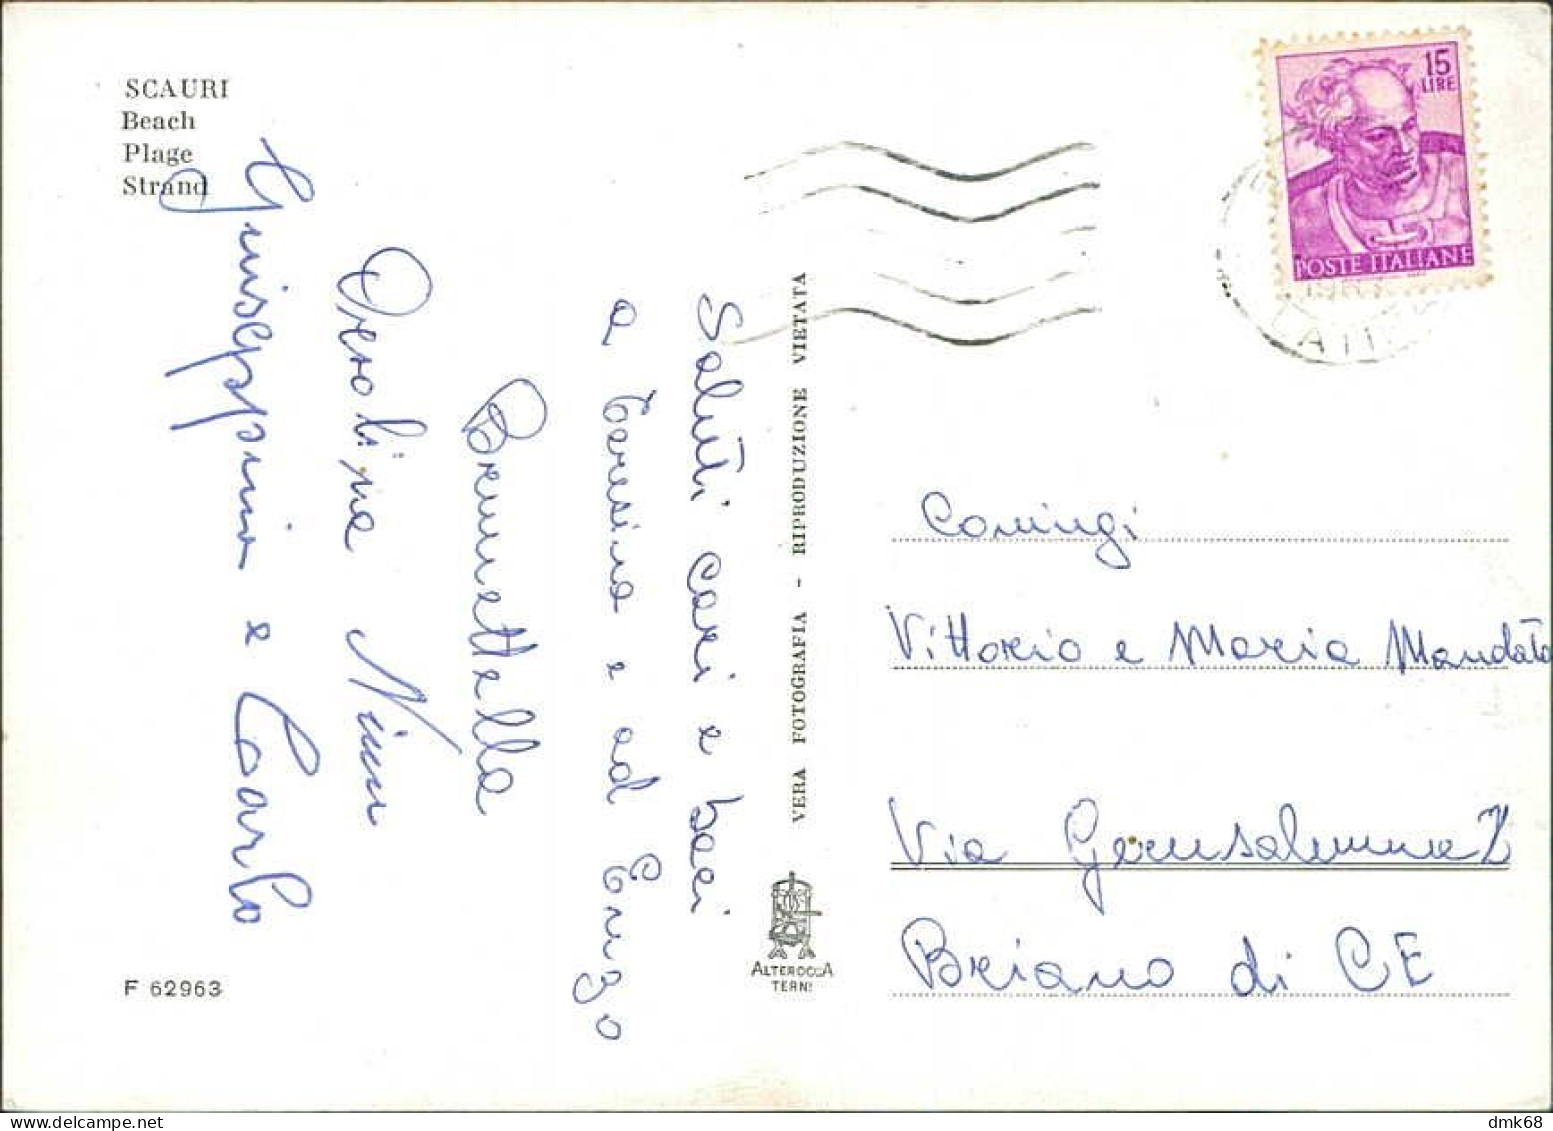 SCAURI
Beach
Plage
Strand
Saluti cari e baci
a Teresina e ad Enzo
Brunettella
Orsolina Ninu
Giuseppina e Carlo
F 62963
VERA FOTOGRAFIA - RIPRODUZIONE VIETATA
ALTEROCCA
TERNI
15
LIRE
POSTE ITALIANE
Coniugi
Vittorio e Maria Mandato
Via Gerusalemme 2
Briano di CE
dmk68